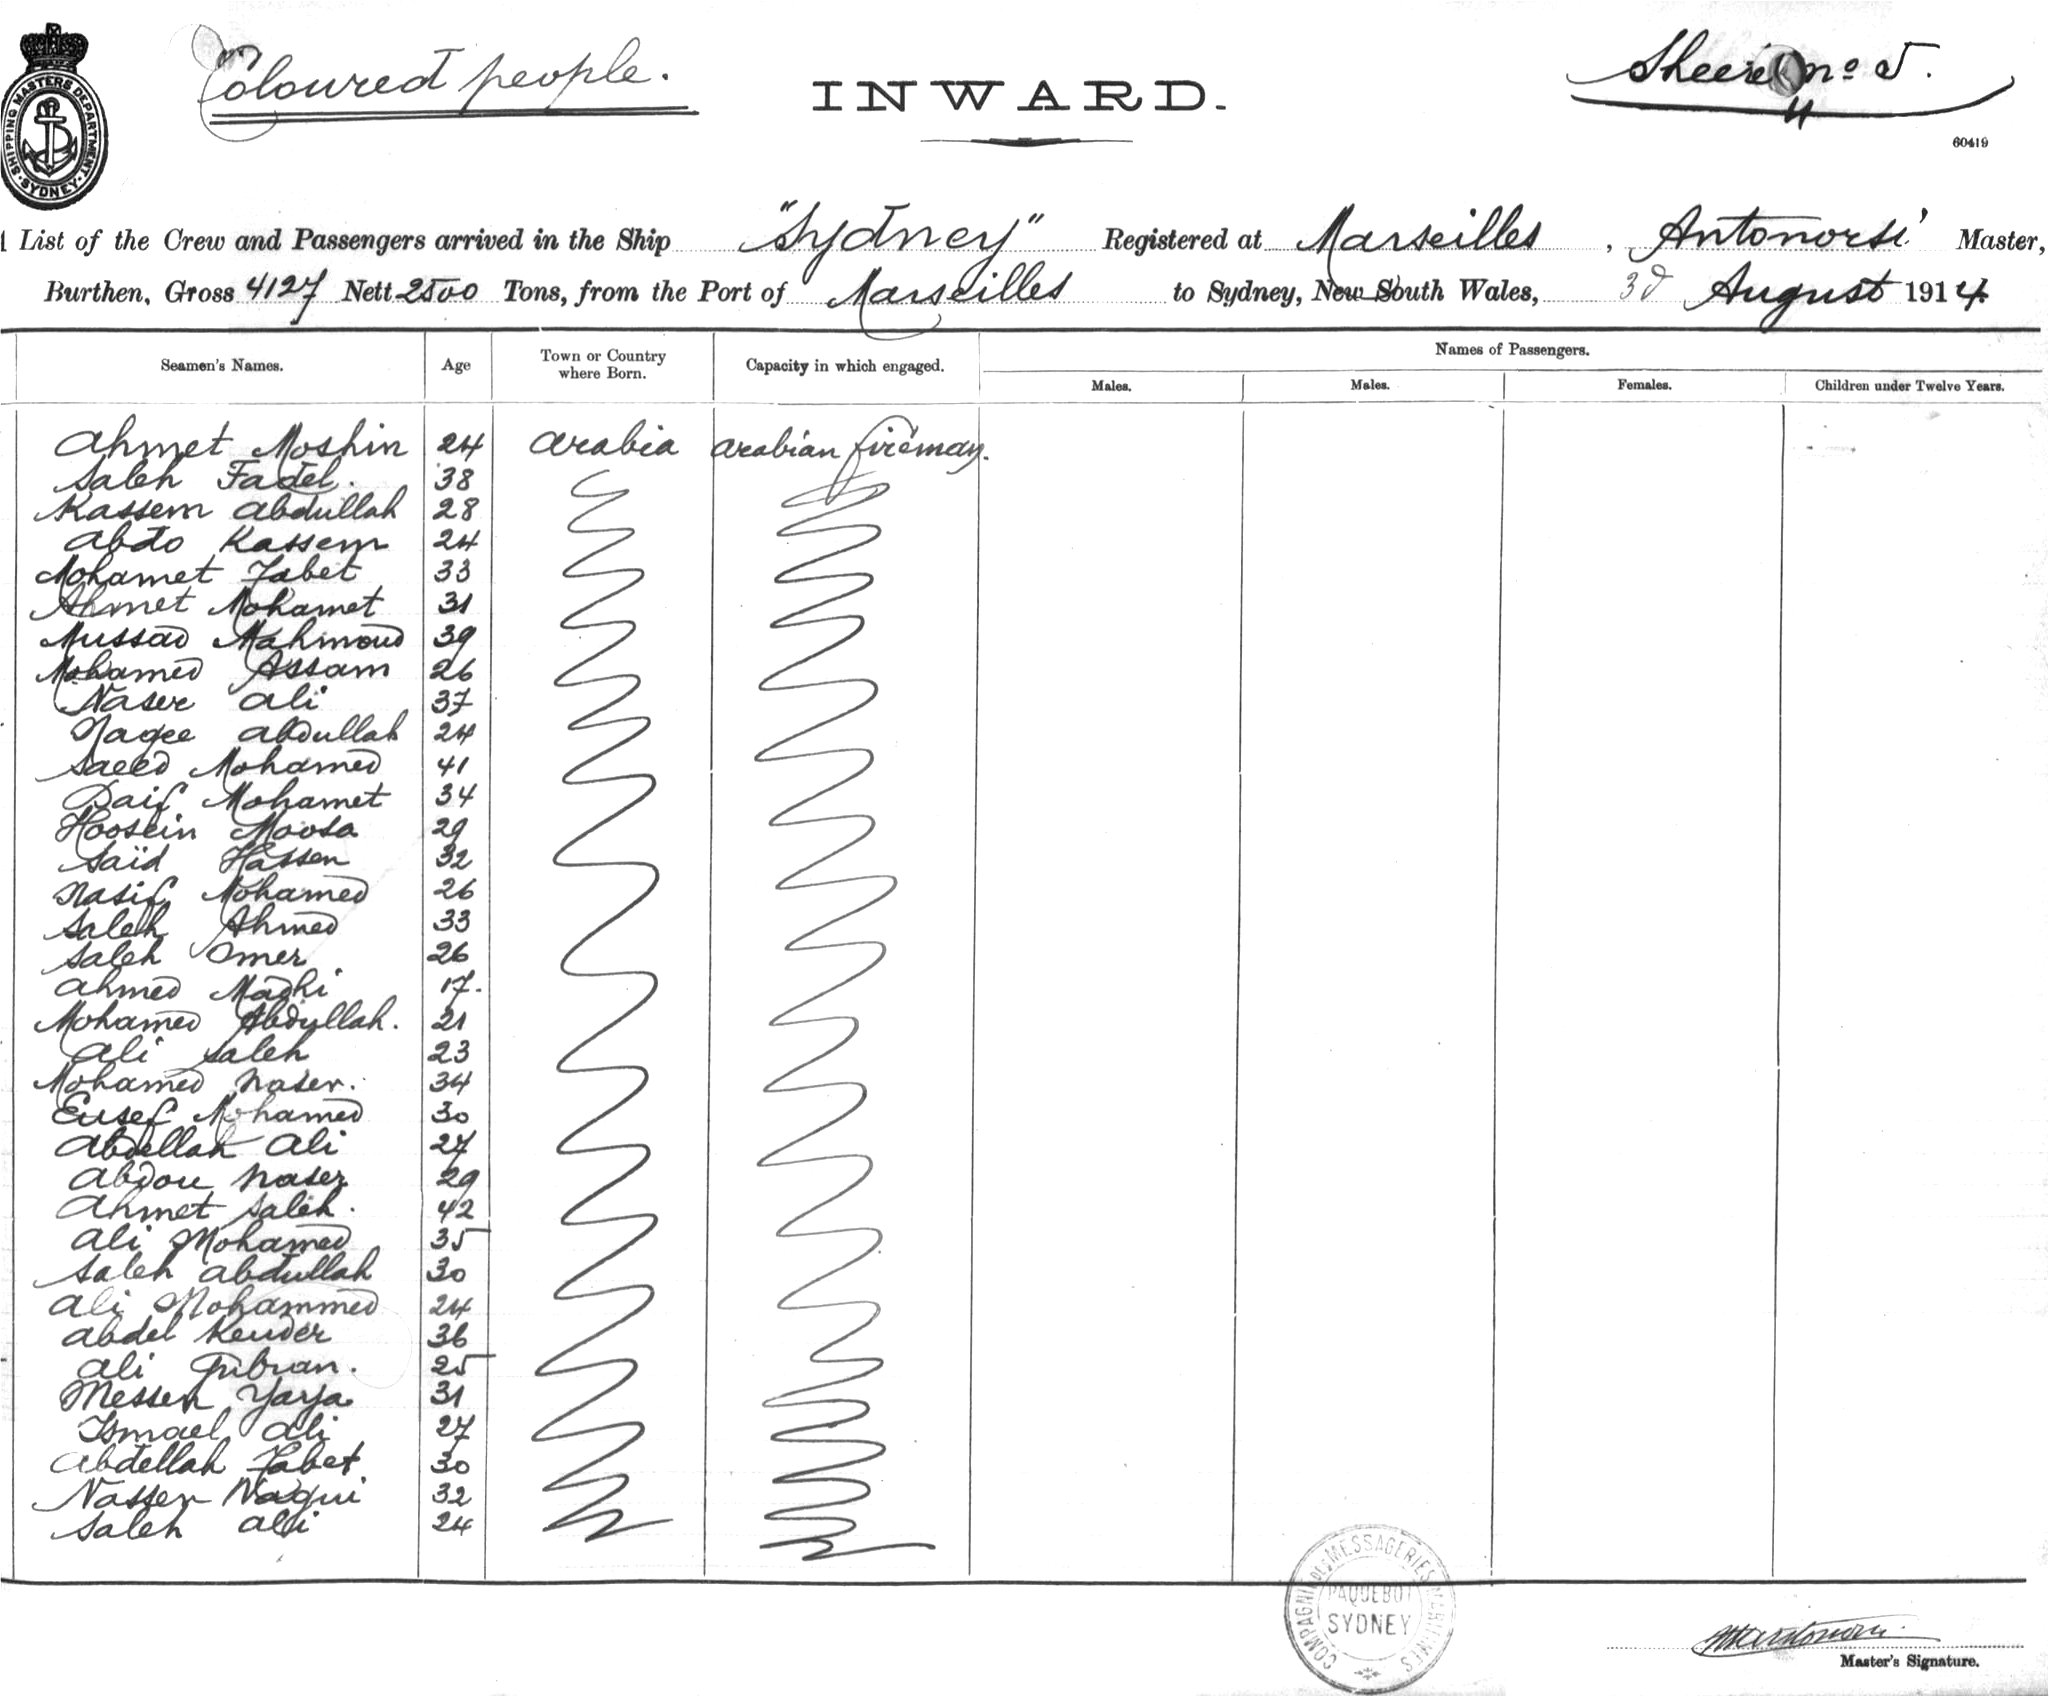 Coloured people.
INWARD.
Sheet no 5.
4
60419
SHIPPING MASTERS DEPARTMENT
SYDNEY
List of the Crew and Passengers arrived in the Ship "Sydney" Registered at Marseilles, Antonorsi Master,
Burthen, Gross 4127 Nett 2500 Tons, from the Port of Marseilles to Sydney, New South Wales, 3d August 1914
Seamen's Names. Age Town or Country where Born. Capacity in which engaged. Names of Passengers.
Males. Males. Females. Children under Twelve Years.
Ahmet Moshin 24 Arabia Arabian fireman.
Saleh Fadel. 38
Kassem Abdullah 28
Abdo Kassem 24
Mohamet Tabet 33
Ahmet Mohamet 31
Mussad Mahmoud 39
Mohamed Assam 26
Naser Ali 37
Nagee Abdullah 24
Saeed Mohamed 41
Daif Mohamet 34
Hoosein Moosa 29
Saïd Hassen 32
Nasif Mohamed 26
Saleh Ahmed 33
Saleh Omer 26
Ahmed Madhi 17.
Mohamed Abdullah. 21
Ali Saleh 23
Mohamed Naser. 34
Eusef Mohamed 30
Abdellah Ali 27
Abdou Naser 29
Ahmet Saleh. 42
Ali Mohamed 35
Saleh Abdullah 30
Ali Mohammed 24
Abdel Keuder 36
Ali Gubran. 25
Messen Yarya 31
Ismael Ali 27
Abdellah Tabet 30
Nasser Nagui 32
Saleh Ali 24
COMPAGNIE DES MESSAGERIES MARITIMES
PAQUEBOT
SYDNEY
Master's Signature.